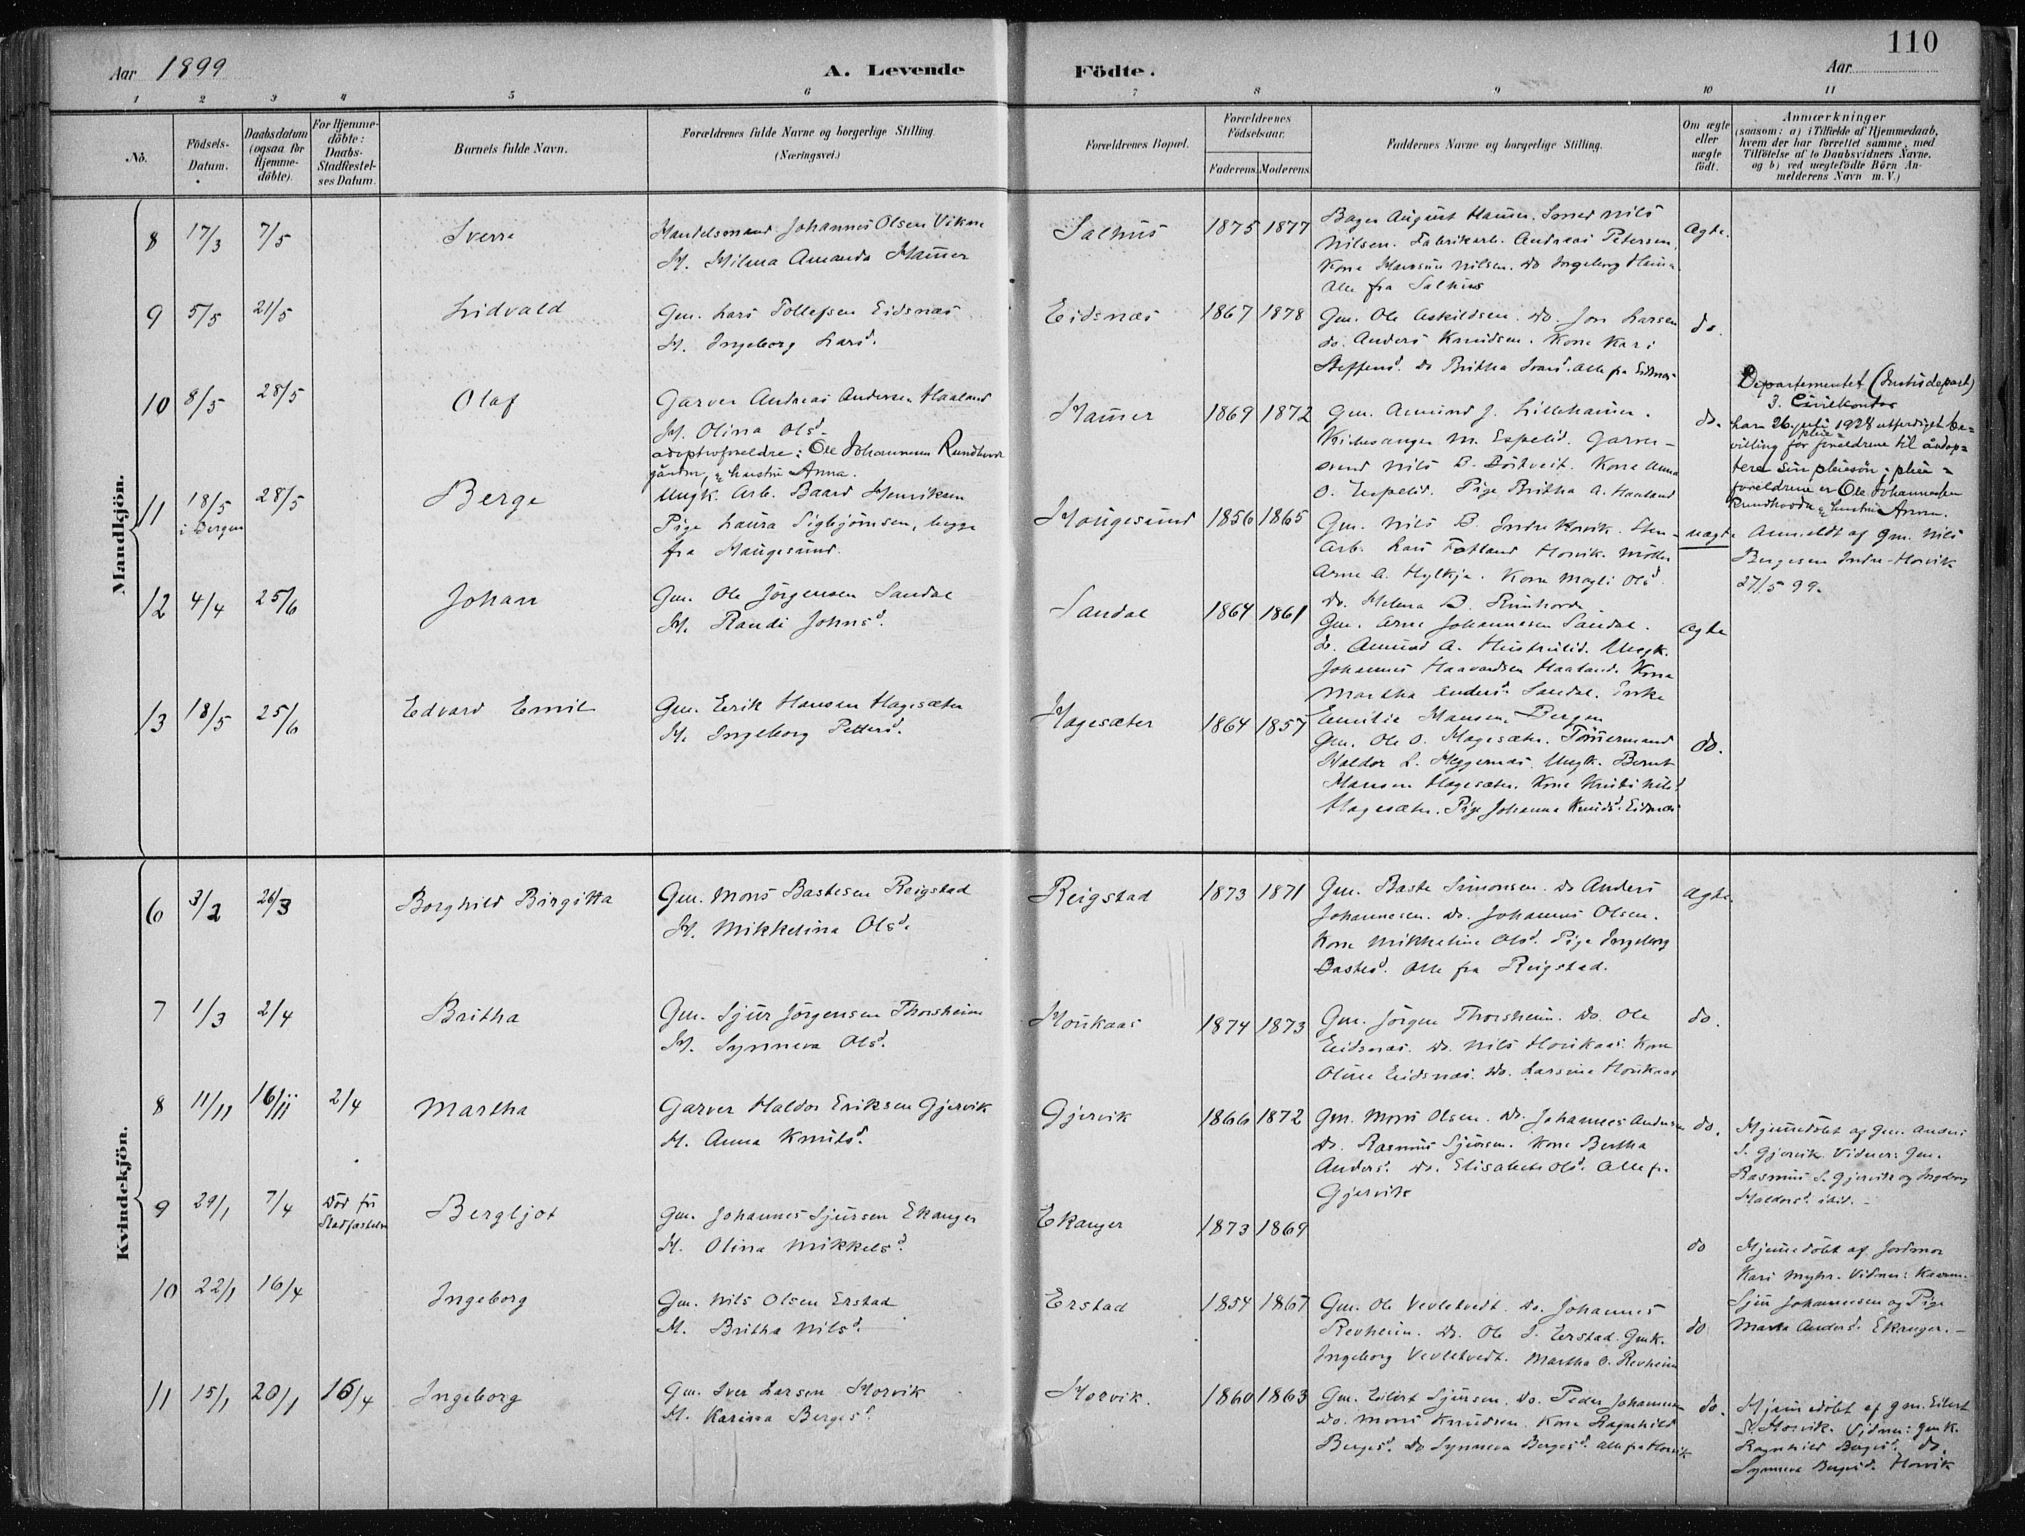 110
Aar 1899
A. Levende Födte.
Aar
1 2 3 4 5 6 7 8 9 10 11
No.
Födsels-Datum.
Daabsdatum (ogsaa for Hjemme-döbte).
For Hjemme-döbte: Daabs-Stadfæstel-ses Datum.
Barnets fulde Navn.
Forældrenes fulde Navne og borgerlige Stilling. (Næringsvei.)
Forældrenes Bopæl.
Forældrenes Födselsaar.
Faderens. Moderens.
Faddernes Navne og borgerlige Stilling.
Om ægte eller uægte födt.
Anmærkninger
(saasom: a) i Tilfælde af Hjemmedaab,
hvem der har forrettet samme, med
Tilföielse af to Daabsvidners Navne,
og b) ved uægtefödte Börn An-
melderens Navn m. V.)
Mandkjön.
8 17/3 7/5 Sverre
Handelsmand Johannes Olsen Vikne
H. Hilma Amanda Hamer
Salhus 1875 1877
Bager August Hamer. Smed Nils
Nilsen. Fabrikarb. Andreas Petersen.
Kone Nilsen. Do Ingeborg
Alle fra Salhus
ægte.
9 5/5 21/5 Lidvald
Gm. Lars Tollefsen Eidsnæs
H. Ingeborg Larsd.
Eidsnæs 1867 1878
Gm. Ole Askildsen. Do. Jon Larsen
do. Anders Knudsen. Kone Kari
Steffensd. Do Britha Ivarsd. Alle fra Eidsnæs
do.
10 8/5 28/5 Olaf
Garver Andreas Andersen Haaland
H. Olina Olsd.
adoptivforeldre: Ole Johannesen Rundhovde
gårdbr., & hustru Anna.
Hamer 1869 1872
Gm. Amund J. Lillehamer.
Kirkesanger M. Espelid. Garver-
svend Nils B. Börtveit. Kone Anna
O. Espelid. Pige Britha A. Haaland
do.
Departementet (Justisdepart)
3. Civilkontor
har 26 juli 1928 utferdiget be-
villing for pleie-foreldrene til å adop-
tere sin pleiesøn; pleie-
foreldrene er Ole Johannesen
Rundhovde & hustru Anna.
11 18/5 i Bergen 28/5 Berge
Ungk. Arb. Baard Henriksen
Pige Laura Sigbjørnsen, begge
fra Haugesund.
Haugesund 1856 1865
Gm. Nils B. Indre Horvik. Sten-
arb. Lars Fotland Horvik. Möller
Arne A. Hylkje. Kone Magli Olsd.
Do. Helena B.
uægte
Anmeldt af gm. Nils
Bergesen Indre-Horvik
27/5 99.
12 4/4 25/6 Johan
Gm. Ole Jörgensen Sandal
H. Randi Johnsd.
Sandal 1864 1861
Gm. Arne Johannesen Sandal.
do. Amund A. Hustrulid. Ungk.
Johannes Haavardsen Haaland. Kone
Martha Andersd. Sandal. Enke
Emilie Hansen. Bergen
ægte
13 18/5 25/6 Edvard Emil
Gm. Erik Hansen Hagesæter
H. Ingeborg Pettersd.
Hagesæter 1864 1857
Gm. Ole O. Hagesæter. Tömmermand
Haldor L. Heggernæs. Ungk. Bernt
Hansen Hagesæter. Kone Nilsd.
Hagesæter. Pige Johanna Knudsd. Eidsnæs
do.
Kvindekjön.
6 3/2 26/3 Borghild Birgitta
Gm. Mons Bastesen Reigstad
H. Mikkelina Olsd.
Reigstad 1873 1871
Gm. Baste Simonsen. do Anders
Johannesen. do. Johannes Olsen.
Kone Mikkeline Olsd. Pige Ingeborg
Bastesd. Alle fra Reigstad.
ægte.
7 1/3 2/4 Britha
Gm. Sjur Jörgensen Thorsheim
H. Synneva Olsd.
Houkaas 1874 1873
Gm. Jörgen Thorsheim. Do. Ole
Eidsnæs. Do. Nils Houkaas. Kone
Oline Eidsnæs. Do. Larsine Houkaas
do.
8 11/11 16/11 2/4 Martha
Garver Haldor Eriksen Gjervik
H. Anna Knutsd.
Gjervik 1866 1872
Gm. Mons Olsen. Do. Johannes Andersen
Do. Rasmus Sjursen. Kone Bertha
Andersd. Do. Elisabeth Olsd. Alle fra
Gjervik
do.
Hjemmedöbt af gm. Anders
S. Gjervik. Vidner: Gm.
Rasmus S. Gjervik og Ingeborg
Haldorsd. ibid.
9 29/1 7/4 Död för Stadfæstelsen Bergljot
Gm. Johannes Sjursen Ekanger
H. Olina Mikkelsd.
Ekanger 1873 1869
do
Hjemmedöbt af Jordmor
Kari Myhr. Vidner: Kaarm.
Sjur Johannesen og Pige
Marta Andersd. Ekanger.
10 22/1 16/4 Ingeborg
Gm. Nils Olsen Erstad
H. Britha Nilsd.
Erstad 1854 1867
Gm. Ole Vevletvedt. Do. Johannes
Revheim. Do. Ole S. Erstad. Gmk.
Ingeborg Vevletvedt. Martha O. Revheim
do
11 15/1 20/1 16/4 Ingeborg
Gm. Iver Larsen Horvik
H. Karina Bergesd.
Horvik. 1860 1863
Gm. Eilert Sjursen. Do. Peder Johannesen
Do. Mons Knudsen. Kone Ragnhild
Bergesd. Do Synneva Bergesd. Alle fra Horvik
do.
Hjemmedöbt af gm. Eilert
S. Horvik. Vidner: Gmk.
Ragnhild Bergesd. do.
Synneva Bergesd. Horvik